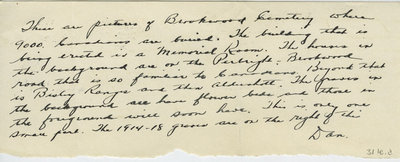 These are pictures of Brookwood Cemetery where
9000 Canadians are buried. The building that is
being erected is a Memorial Room. The houses in
the background are on the Pirbright-Brookwood
road that is so familiar to Canadians. Beyond that
is Bisley Range and then Aldershot. The graves in
the background all have flower beds and those in
the foreground will soon have. This is only one
small part. The 1914-18 graves are on the right of this
Dan.